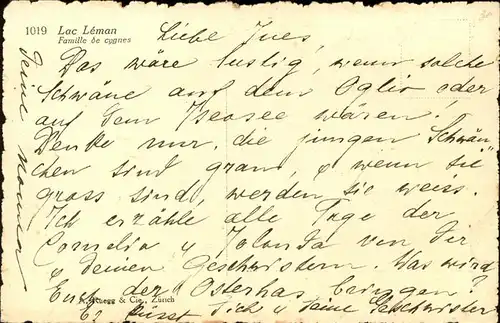 1019 Lac Léman
Famille de cygnes
Liebe Ines,
Das wäre lustig, wenn solche
Schwäne auf dem Oglio oder
auf dem Iseosee wären!
Denke nur, die jungen Schwän-
chen sind grau, & wenn sie
gross sind, werden sie weiss.
Ich erzähle alle Tage der
Cornelia & Jolanda von Dir
& deinen Geschwistern. Was wird
Euch der Osterhas bringen?
& Cie., Zürich
Es küsst Dich & deine Geschwister
Deine Nonna